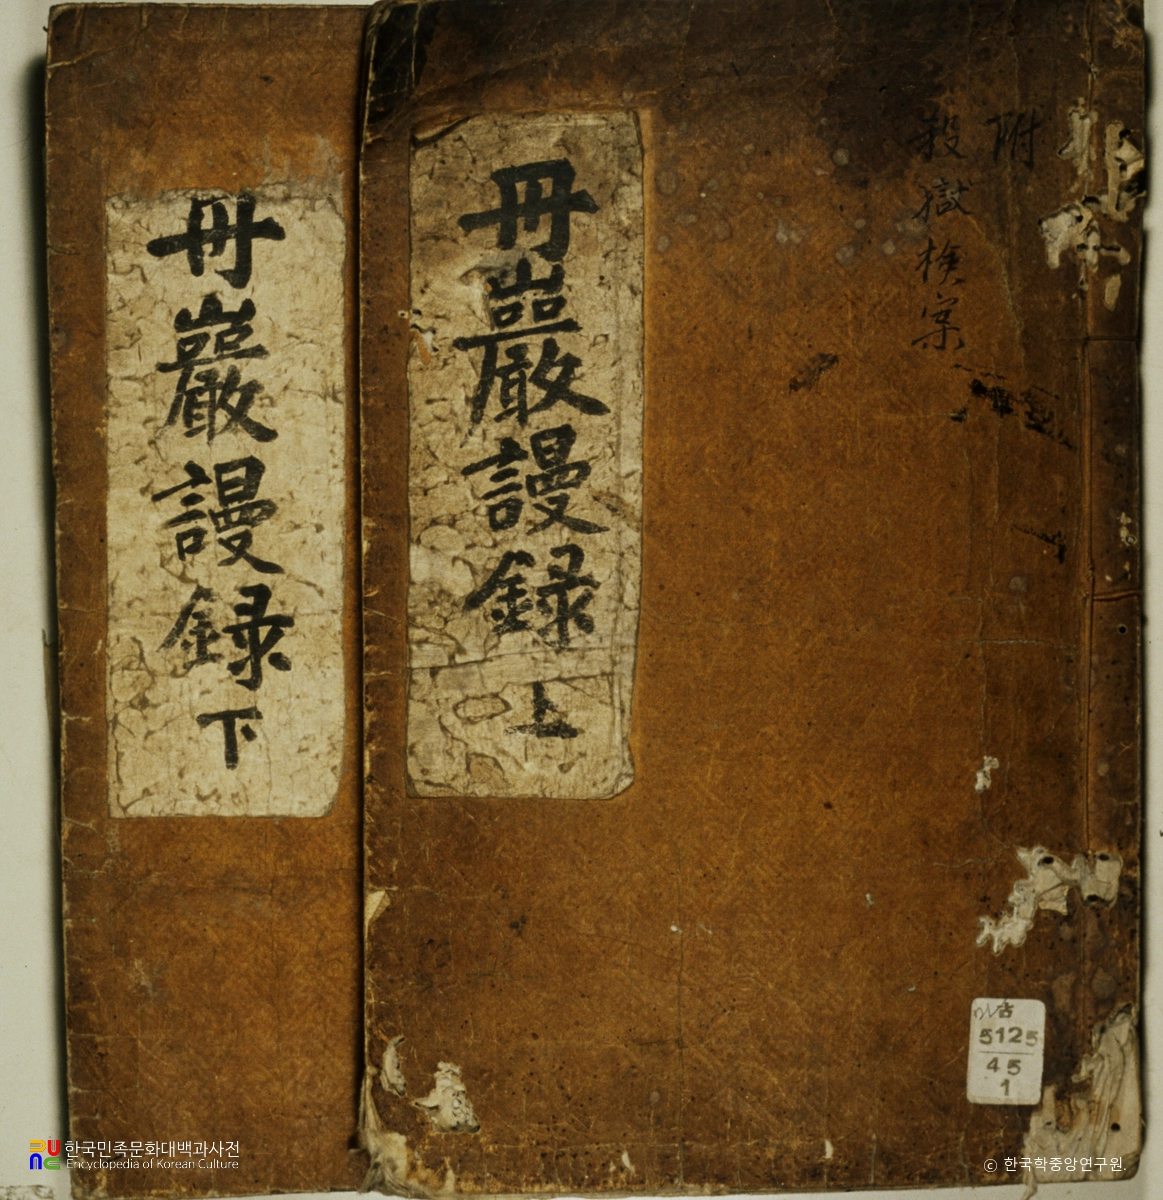 附
殺獄検案
丹巖謾録 上
丹巖謾録 下
古
5125
45
1
한국민족문화대백과사전
Encyclopedia of Korean Culture
© 한국학중앙연구원.